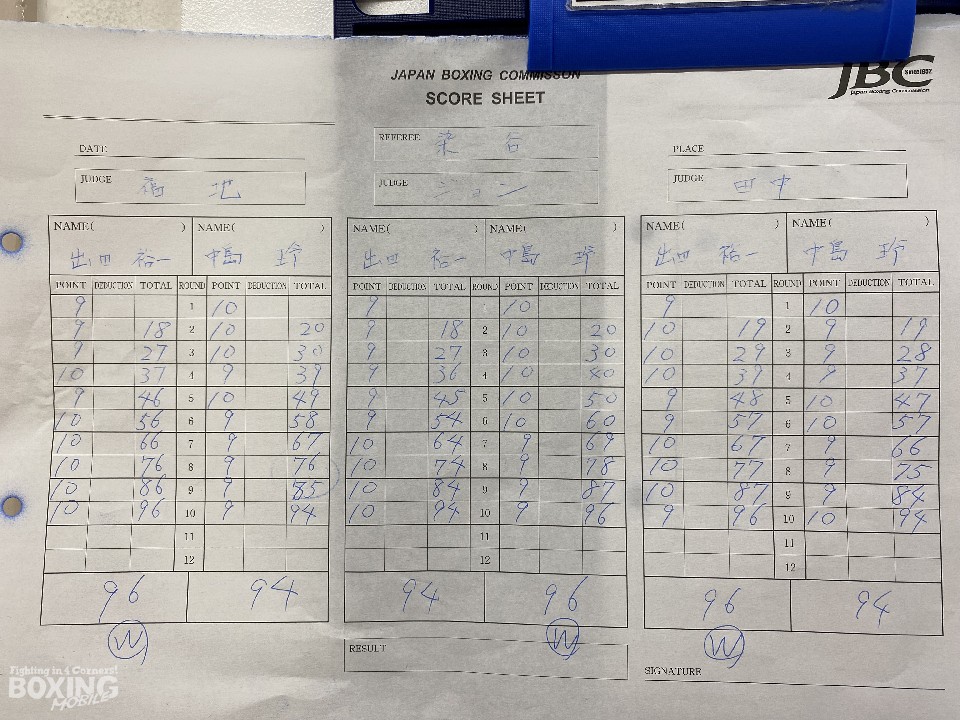 JAPAN BOXING COMMISSON
SCORE SHEET
JBC Since1952
Japan Boxing Commission
DATE
REFEREE 染 谷
PLACE
JUDGE 福 地
JUDGE ジョン
JUDGE 田中
NAME( ) NAME( ) NAME( ) NAME( ) NAME( ) NAME( )
出田 裕一 中島 玲 出田 裕一 中島 玲 出田 裕一 中島 玲
POINT DEDUCTION TOTAL ROUND POINT DEDUCTION TOTAL POINT DEDUCTION TOTAL ROUND POINT DEDUCTION TOTAL POINT DEDUCTION TOTAL ROUND POINT DEDUCTION TOTAL
9 1 10 9 1 10 9 1 10
9 18 2 10 20 9 18 2 10 20 10 19 2 9 19
9 27 3 10 30 9 27 3 10 30 10 29 3 9 28
10 37 4 9 39 9 36 4 10 40 10 39 4 9 37
9 46 5 10 49 9 45 5 10 50 9 48 5 10 47
10 56 6 9 58 9 54 6 10 60 9 57 6 10 57
10 66 7 9 67 10 64 7 9 69 10 67 7 9 66
10 76 8 9 76 10 74 8 9 78 10 77 8 9 75
10 86 9 9 85 10 84 9 9 87 10 87 9 9 84
10 96 10 9 94 10 94 10 9 96 9 96 10 10 94
11 11 11
12 12 12
96 94 94 96 96 94
W W W
RESULT
SIGNATURE
Fighting in 4 Corners!
BOXING
MOBILE